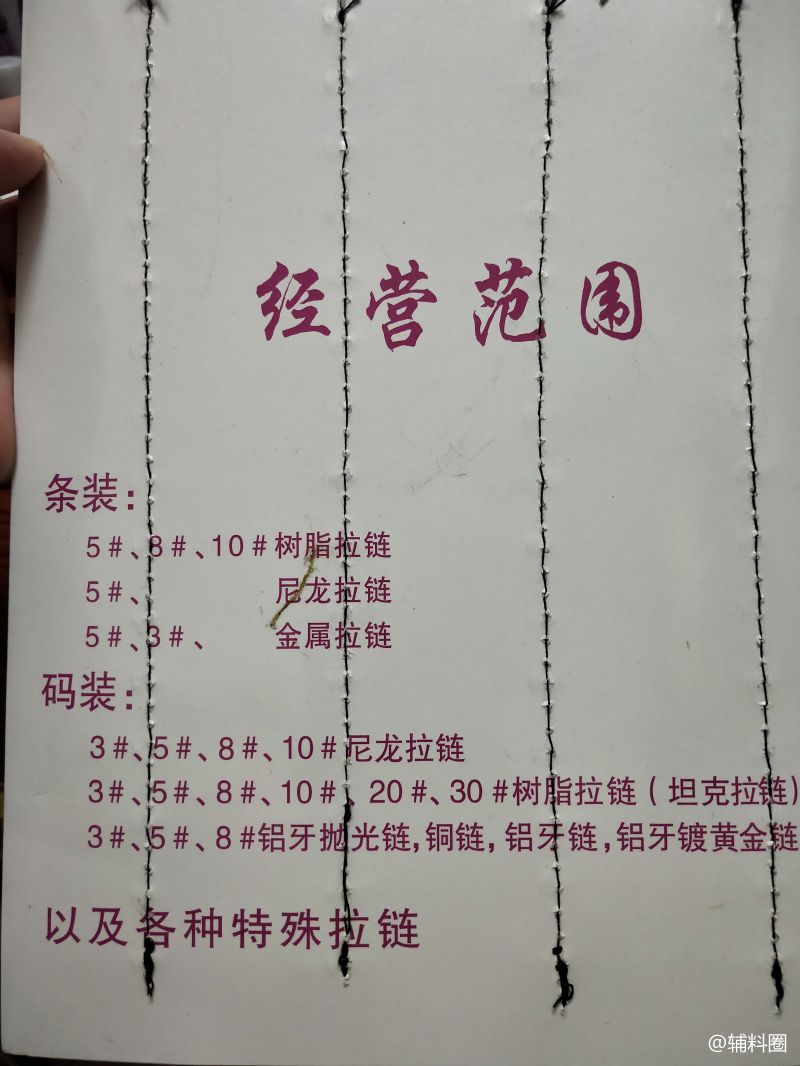 经营范围
条装：
5#、8#、10#树脂拉链
5#、 尼龙拉链
5#、3#、 金属拉链
码装：
3#、5#、8#、10#尼龙拉链
3#、5#、8#、10#、20#、30#树脂拉链（坦克拉链）
3#、5#、8#铝牙抛光链,铜链,铝牙链,铝牙镀黄金链
以及各种特殊拉链
@辅料圈